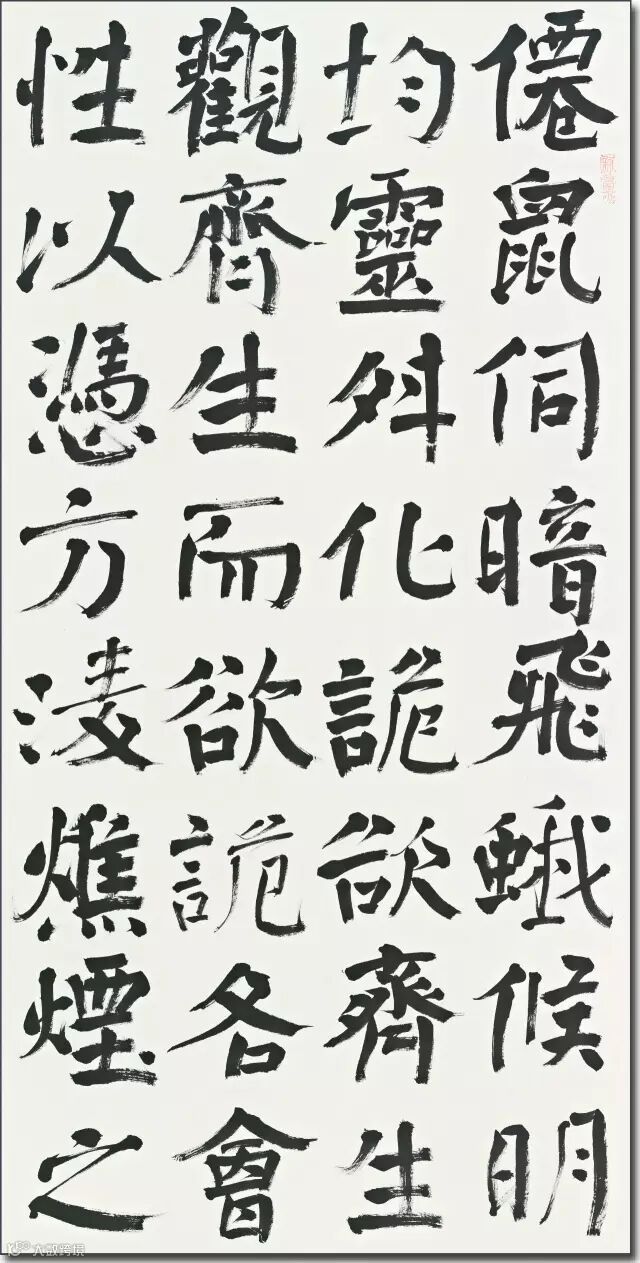 僊鼠伺暗飛蛾候明
均靈舛化詭欲齊生
觀齊生而欲詭各會
性以憑方淩燋煙之
大数跨境